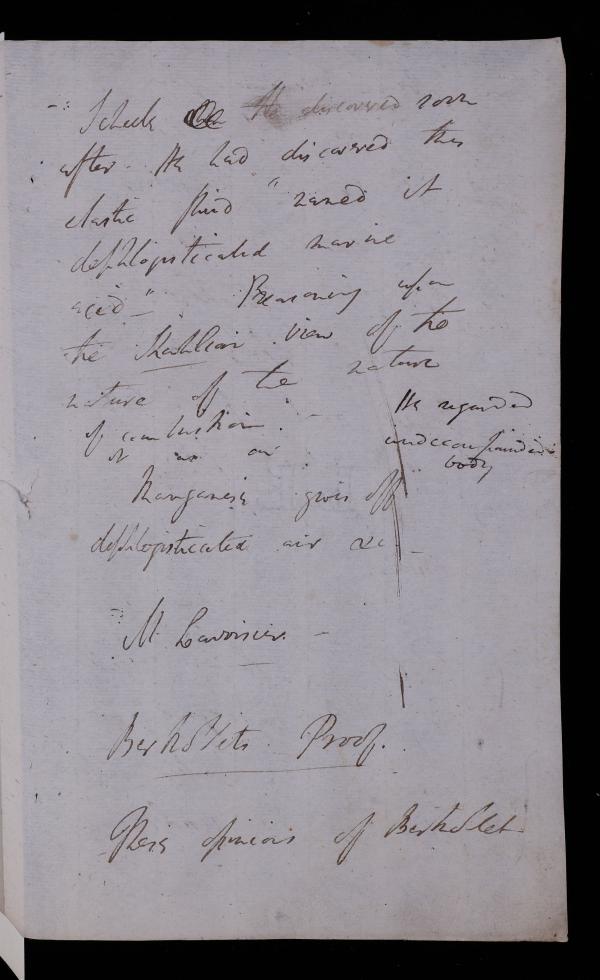 Scheele He discovered soon
after. He had discovered this
elastic fluid "named it
dephlogisticated marine
acid" - Reasoning upon
the Stahlian view of the
nature of the nature
of combustion.
He regarded
it as an
undecompounded
body
Manganese gives off
dephlogisticated air &c -
M. Lavoisier. -
Berthollets Proof.
These opinions of Berthollet